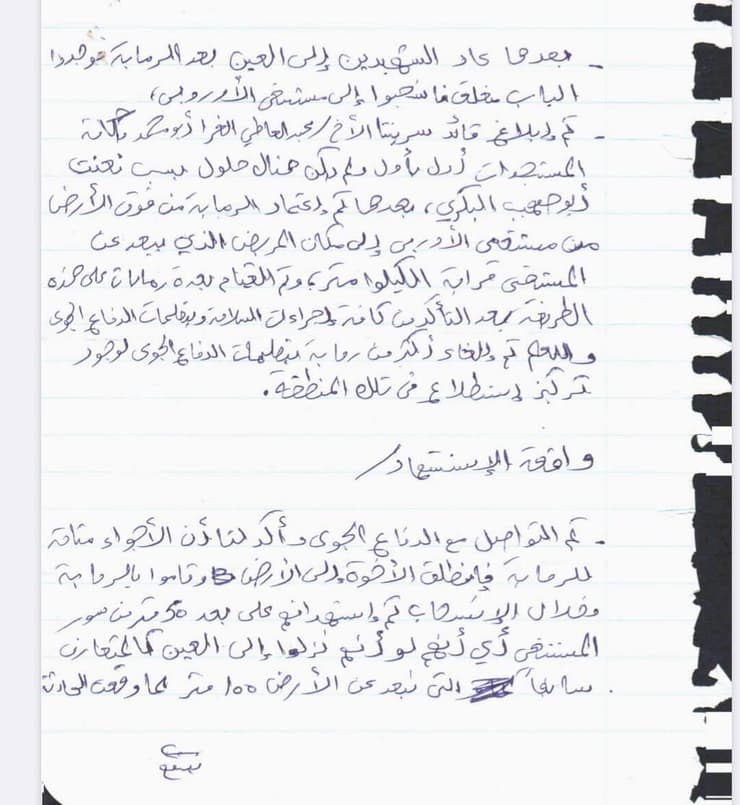 - بعدها عاد الشهيدين إلى العين بعد الرماية فوجدوا
الباب مغلق فانسحبوا إلى مستشفى الأوروبي،
- تم إبلاغ قائد سريتنا الأخ/ عبد العاطي الفرا أبو محمد بكافة
المستجدات أول بأول ولم يكن هنال حلول بسبب تعنت
أبو صهيب البكري، بعدها تم إعتماد الرماية من فوق الأرض
من مستشفى الأوربي إلى مكان المريض الذي يبعد عن
المستشفى قرابة الكيلوا متر، وتم القيام بعدة رمايات على هذه
الطريقة بعد التأكد من كافة إجراءات السلامة وتعليمات الدفاع الجوي
و تم إلغاء أكثر من رماية بتعليمات الدفاع الجوي لوجود
تركيز إستطلاع في تلك المنطقة.
واقعة الإستشهاد/
- تم التواصل مع الدفاع الجوي وأكد لنا أن الأجواء متاحة
للرماية فإنطلق الأخوة إلى الأرض وقاموا بالرماية
وخلال الإنسحاب تم إستهدافهم على بعد 50 متر من سور
المستشفى أي أنهم لو أنهم نزلوا إلى العين المتعارف
سابقاً التي تبعد عن الأرض 100 متر لما وقعت الحادثة.
يتبع